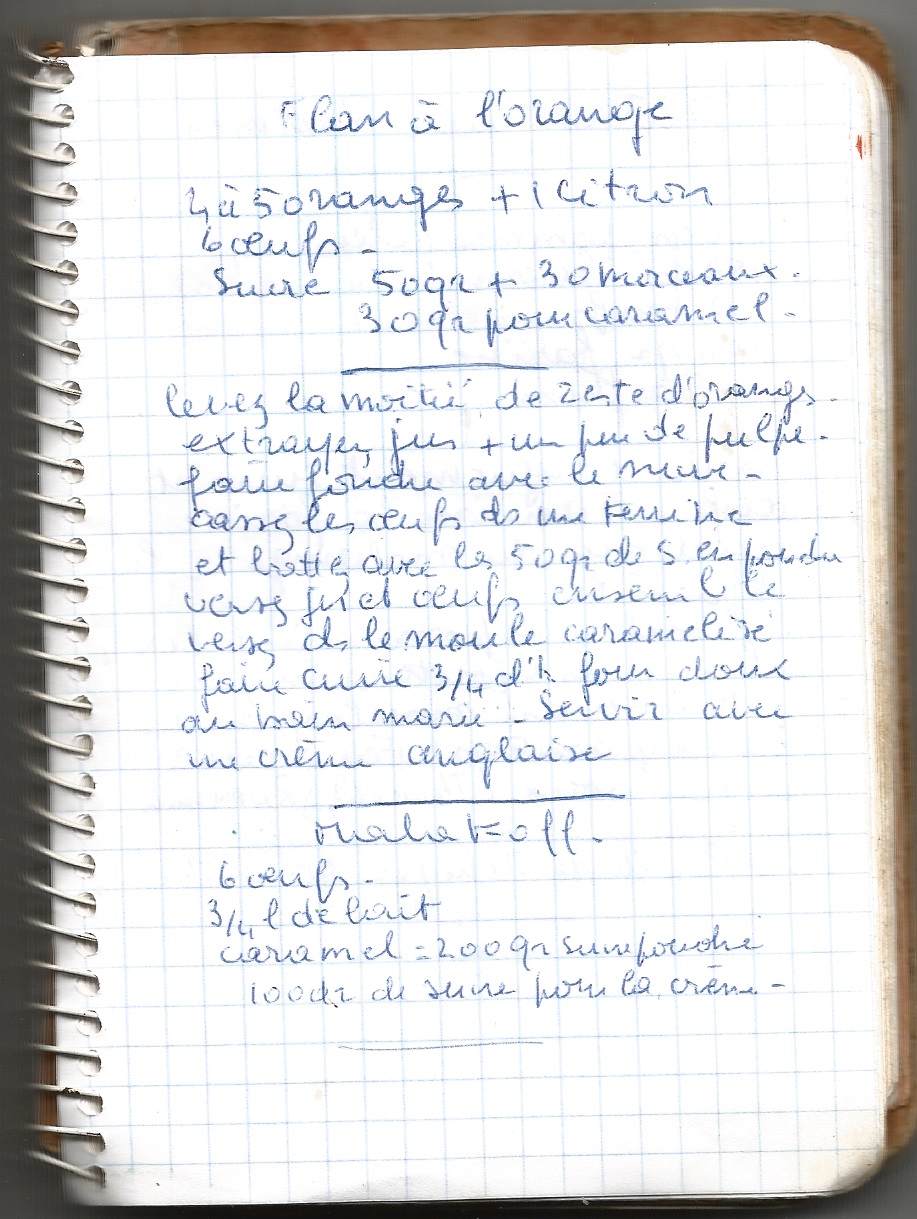 Flan à l'orange
4 à 5 oranges + 1 citron
6 œufs -
Sucre 50gr + 30 morceaux.
30 gr pour caramel.
levez la moitié de zeste d'oranges.
extrayez jus + un peu de pulpe.
faire fondre avec le sucre -
cassez les œufs ds une terrine
et battez avec les 50gr de s. en poudre
versez jus et œufs ensemble
versez ds le moule caramélisé
faire cuire 3/4 d'h four doux
au bain marie - Servir avec
une crème anglaise
Malakoff.
6 œufs.
3/4 l de lait
caramel = 200 gr sucre poudre
100 gr de sucre pour la crème -